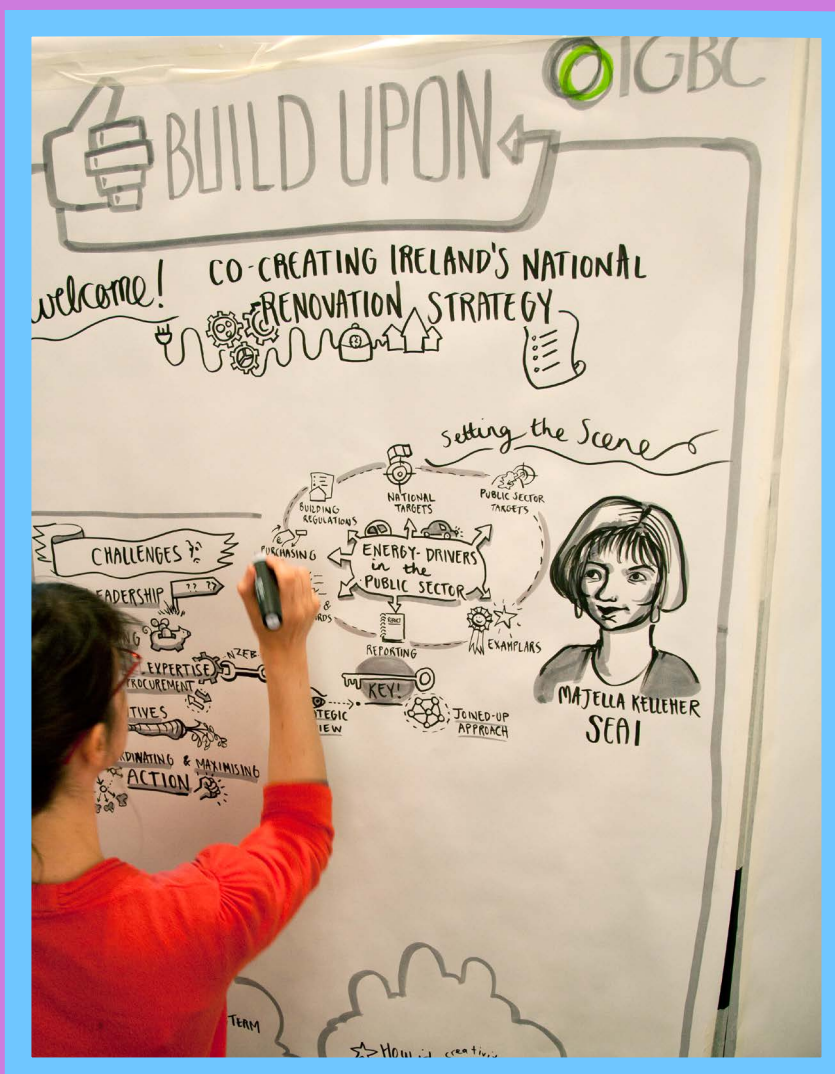 IGBC
BUILD UPON
welcome!
CO-CREATING IRELAND'S NATIONAL
RENOVATION STRATEGY
Setting the Scene
BUILDING
REGULATIONS
NATIONAL
TARGETS
PUBLIC SECTOR
TARGETS
PURCHASING
ENERGY-DRIVERS
in the
PUBLIC SECTOR
&
REPORTING
EXEMPLARS
KEY!
JOINED-UP
APPROACH
MAJELLA KELLEHER
SEAI
CHALLENGES
?? ??
EXPERTISE
NZEB
PROCUREMENT
& MAXIMISING
ACTION
TERM
How